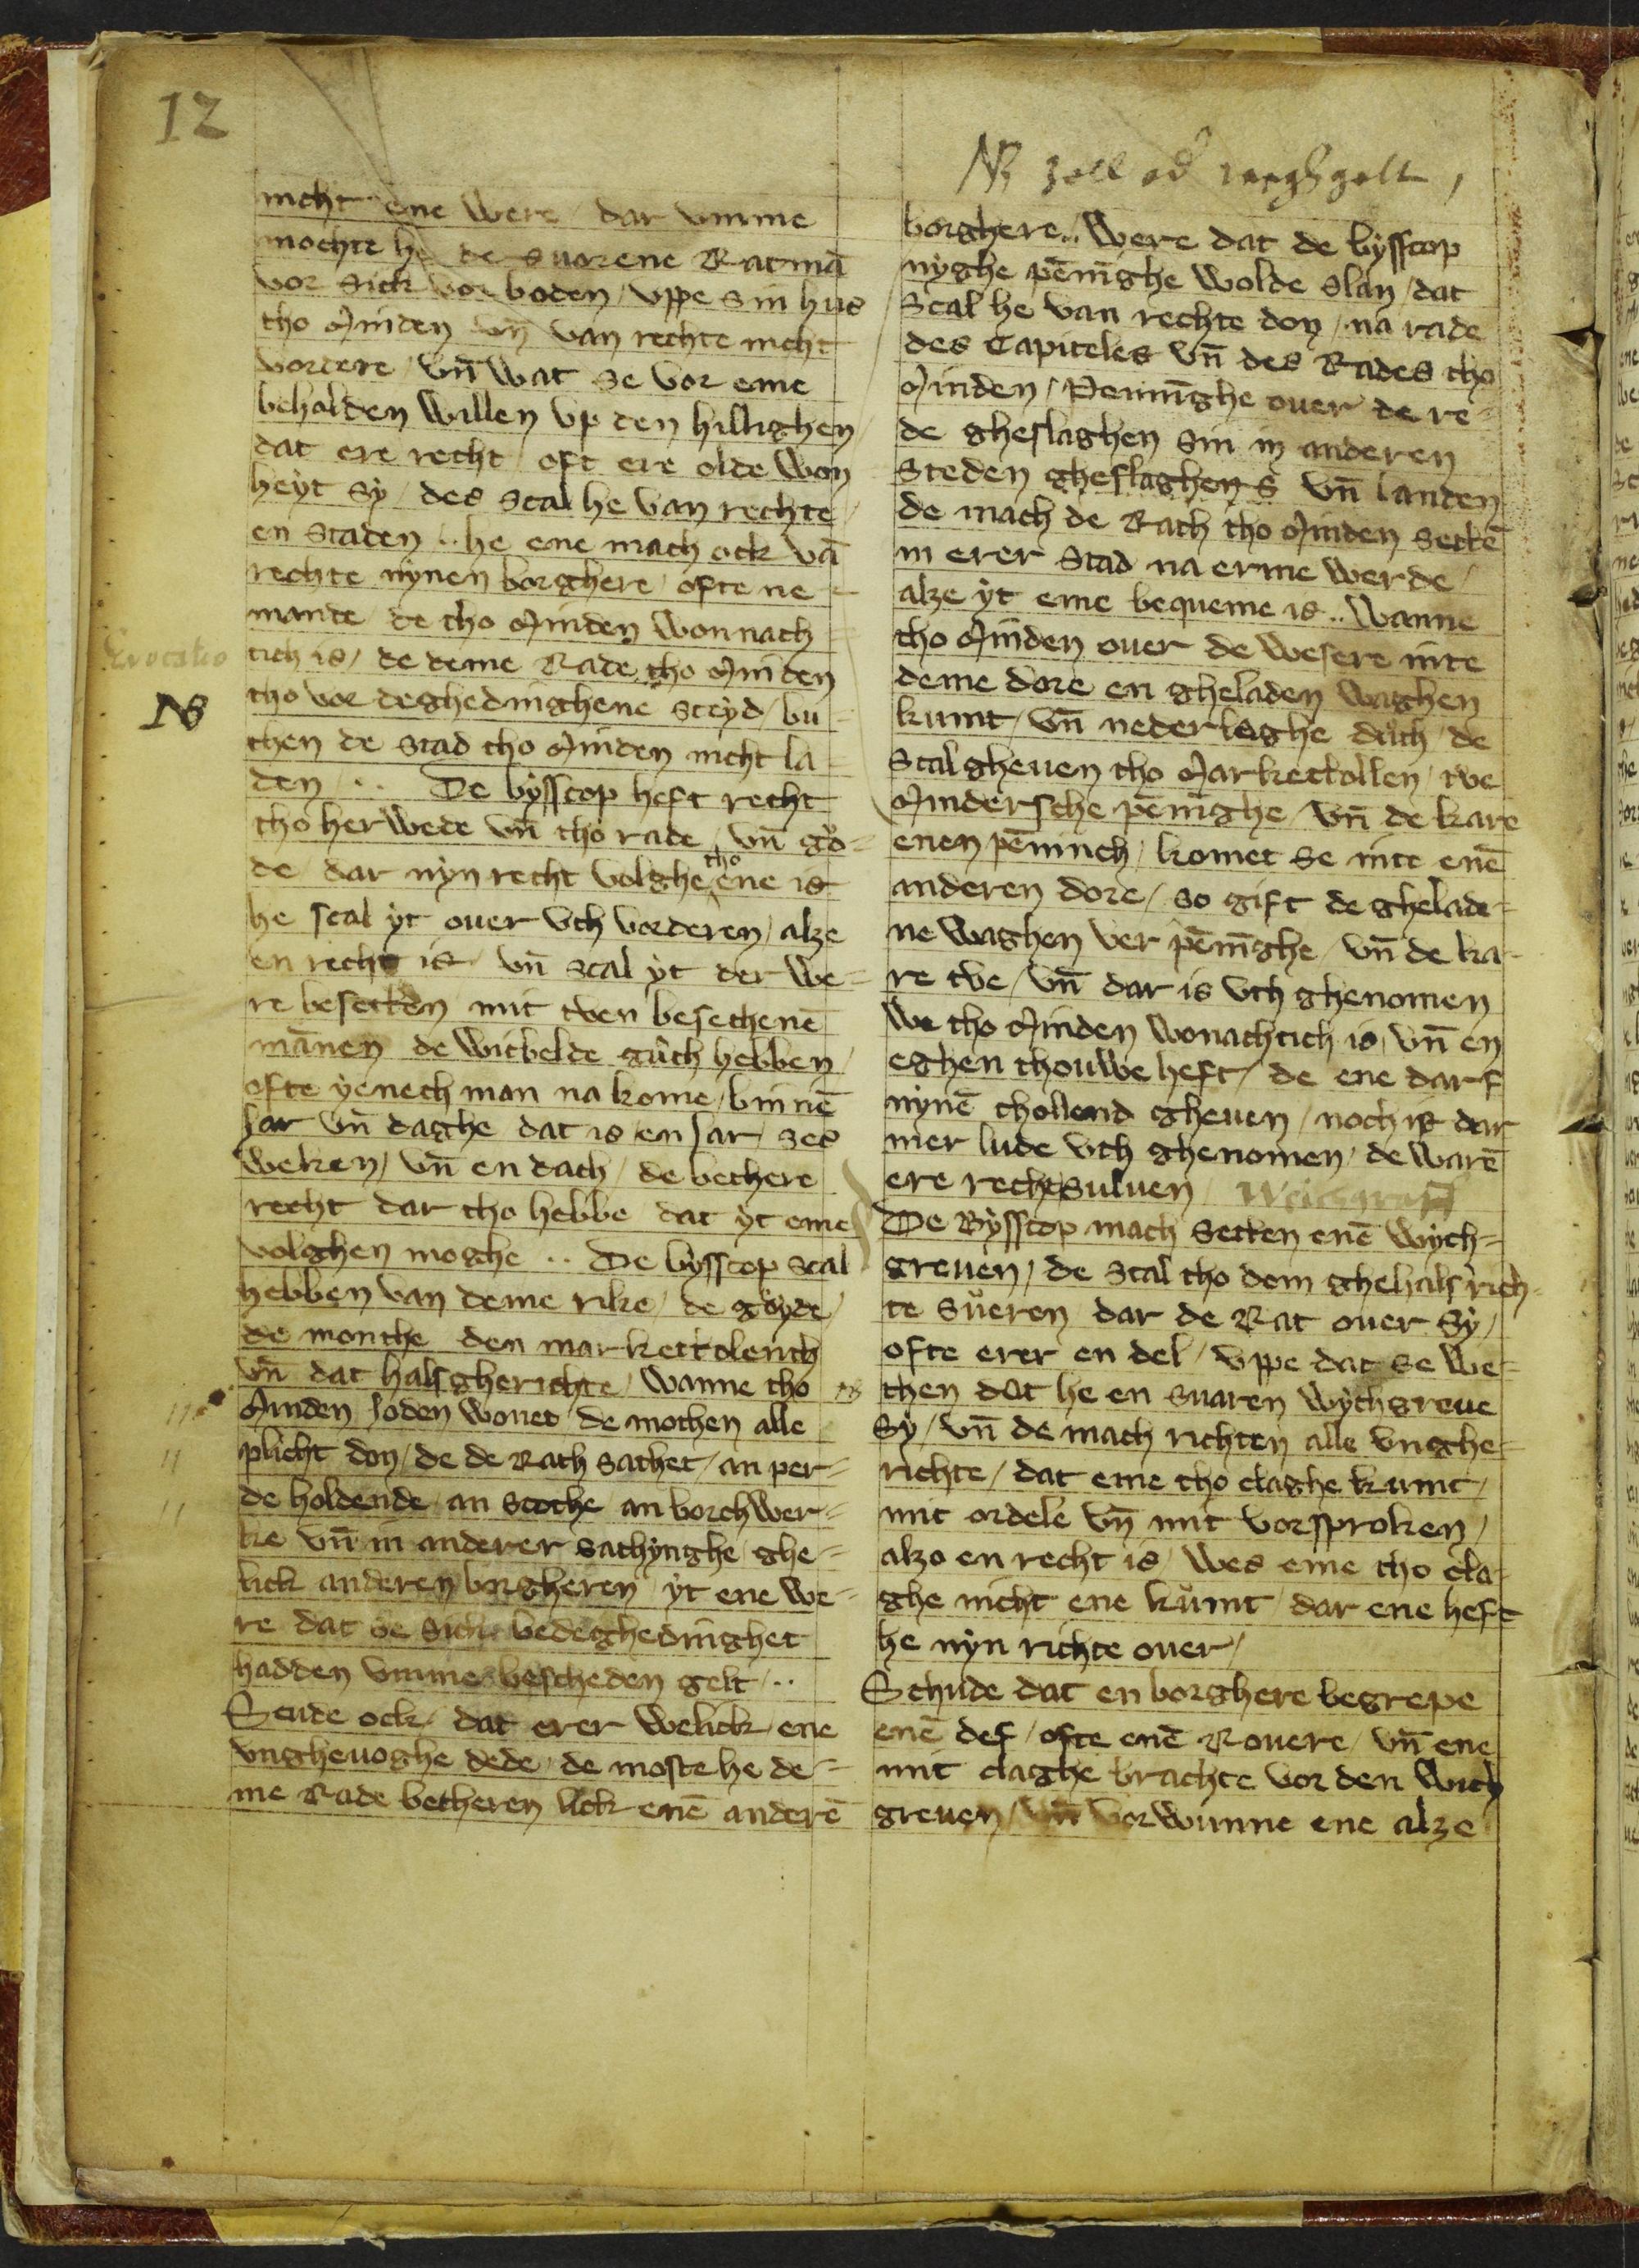 12
nicht ene were / dar vmme
mochte he de suorene Ratmā
vor sick vor boden / vppe sin hus
tho Minden vn̄ van rechte nicht
vordere / vn̄ wat se vor eme
beholden willen vp den hillighen
dat ere recht / oft ere olde won
heyt sy / des scal he van rechte
en staden .. he ene mach ock vā
rechte nynen borghere / ofte ne=
mande de tho Minden wonnach
tich is / de deme Rade tho Minden
Evocatio
tho vor deghedinghene steyd / bu=
NB
then de stad tho Minden nicht la=
den / .. De bysscop heft recht
tho herwede vn̄ tho rade / vn̄ go=
de dar nyn recht volghe tho ene is
he scal yt ouer vth vorderen / alze
en recht is / vn̄ scal yt der we=
re besetten mit twen besethenē
mānen de witbelde guth hebben /
ofte yenech man na kome / binnē
Jar vn̄ daghe dat is en Jar / ses
weken / vn̄ en dach / de bethere
recht dar tho hebbe dat yt eme
volghen moghe .. De bysscop scal
hebben van deme rike / de goyde /
de monthe den markettolench
vn̄ dat halsgherichte / Wanne tho
Minden Joden wonet de mothen alle
plicht don / de de Rath sathet / an per=
de holdende an scothe an borchwer=
ke vn̄ in anderer sathynghe ghe=
lick anderen borgheren / yt ene we=
re dat se sick bedeghedinghet
hadden vmme bescheden gelt / ..
Scude ock / dat erer welick / ene
vnghevoghe dede / de moste he de=
me Rade betheren lick enē anderē
NB zoll od
borghere .. Were dat de bysscop
nyghe pēnīghe wolde slan / dat
scal he van rechte don / na rade
des Capiteles vn̄ des Rades tho
Minden / Pennīghe ouer de re=
de gheslaghen sin in anderen
steden gheslaghen s vn̄ landen
de mach de Rath tho Minden settē
in erer stad na erme werde /
alze yt eme bequeme is .. Wanne
tho Minden ouer de wesere inte
deme dore en gheladen waghen
kumt / vn̄ nederleghe duth / de
scal gheuen tho Markettollen / twe
Mindersche pēnīghe / vn̄ de kare
enen pēninch / komet se inte enē
anderen dore / so gift de ghelade=
ne waghen ver pēnīghe / vn̄ de ka=
re twe / vn̄ dar is vth ghenomen
we tho Minden wonachtich is / vn̄ en
eghen thouwe heft / de ene darf
nynē thollend gheuen / noch is dar
mer lude vth ghenomen / de warē
ere recht suluen / Weichgraff
De Bysscop mach setten enē wych=
greuen / de scal tho dem ghehals rich=
te sueren dar de Rat ouer sy /
ofte erer en del / vppe dat se we=
NB then dat he en suaren wychgreue
sy / vn̄ de mach richten alle vnghe=
richte / dat eme tho claghe kumt /
mit ordele vn̄ mit vorsproken /
alzo en recht is / wes eme tho cla=
ghe nicht ene kumt / dar ene heft
he nyn richte ouer /
Schude dat en borghere begrepe
enē def / ofte enē Rouere / vn̄ ene
mit claghe brachte vor den wich
greuen / vn̄ vorwunne ene alze